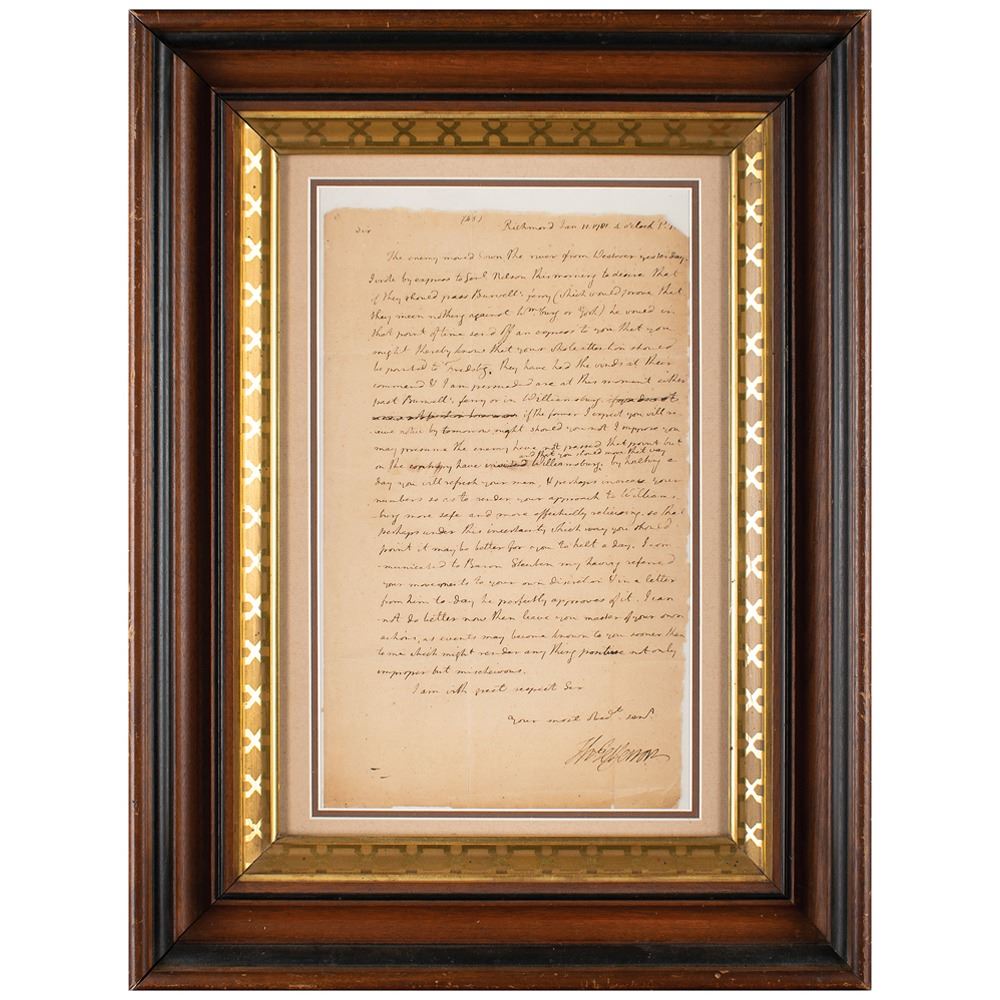 (48)
Sir Richmond Jan. 11. 1781 4 o'clock P.M.
The enemy moved down the river from Westover yesterday.
I wrote by express to Genl. Nelson this morning to desire that
if they should pass Burwell's ferry (which would prove that
they mean nothing against Wmsburg or York) he would in
that point of time send off an express to you that you
might thereby know that your whole attention should
be pointed to Fredsbg. They have had the winds at their
command & I am persuaded are at this moment either
past Burwell's ferry or in Williamsburg.
if the former I expect you will re-
ceive notice by tomorrow night should you not I suppose you
may presume the enemy have not passed that point but
and that you should move that way
on the contrary have invaded Williamsburg. by halting a
day you will refresh your men, & perhaps increase your
numbers so as to render your approach to Williams-
burg more safe and more effectually relieving. so that
perhaps under this incertainty which way you should
point it may be better for you to halt a day. I com-
municated to Baron Steuben my having referred
your movements to your own discretion & in a letter
from him to-day he perfectly approves of it. I can
not do better now than leave you master of your own
actions, as events may become known to you sooner than
to me which might render any thing positive not only
improper but mischeivous.
I am with great respect Sir
Your most obedt. servt.
Th: Jefferson